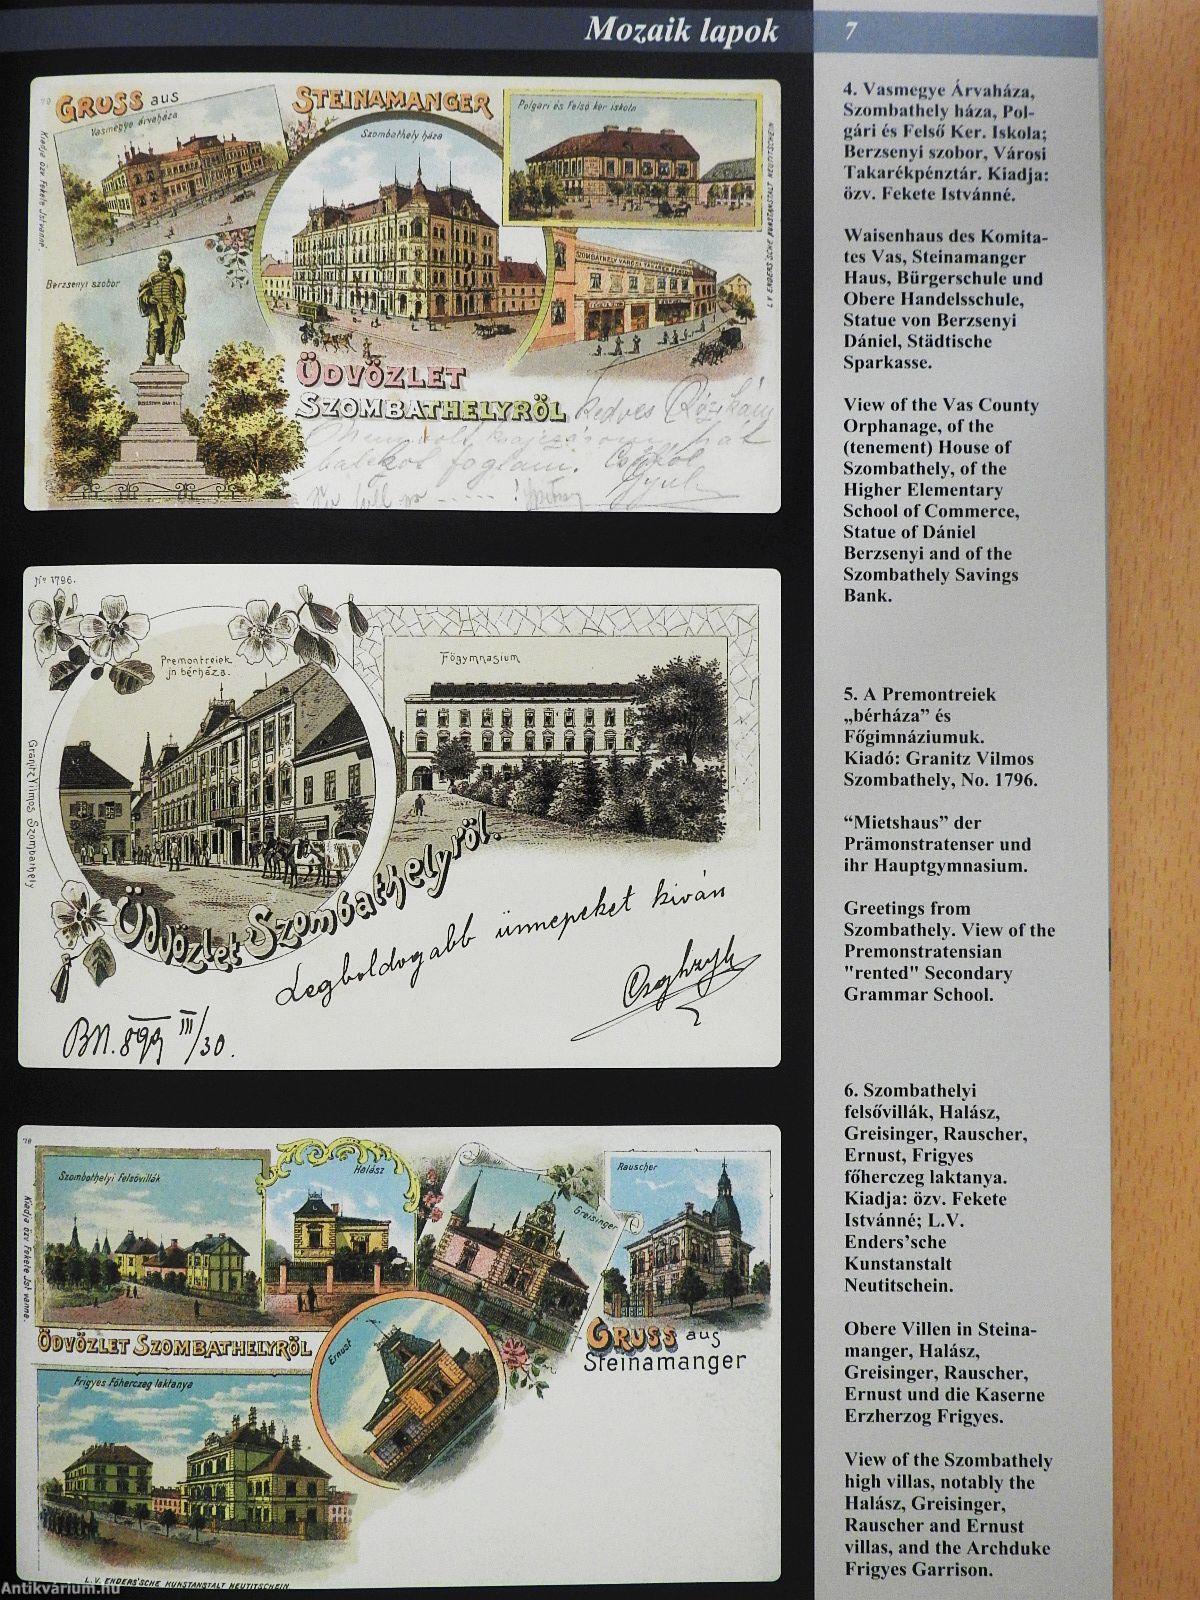 Mozaik lapok
7
GRUSS aus
STEINAMANGER
Vasmegye árvaháza
Szombathely háza
Polgári és Felső ker iskola
Kiadja özv Fekete Istvánné.
L.V. ENDERS'SCHE KUNSTANSTALT NEUTITSCHEIN
Berzsenyi szobor
SZOMBATHELY VÁROSI TAKARÉK
ÜDVÖZLET
SZOMBATHELYRŐL
Kedves
foglam.
4. Vasmegye Árvaháza,
Szombathely háza, Pol-
gári és Felső Ker. Iskola;
Berzsenyi szobor, Városi
Takarékpénztár. Kiadja:
özv. Fekete Istvánné.
Waisenhaus des Komita-
tes Vas, Steinamanger
Haus, Bürgerschule und
Obere Handelsschule,
Statue von Berzsenyi
Dániel, Städtische
Sparkasse.
View of the Vas County
Orphanage, of the
(tenement) House of
Szombathely, of the
Higher Elementary
School of Commerce,
Statue of Dániel
Berzsenyi and of the
Szombathely Savings
Bank.
No 1796.
Premontreiek
jn bérháza.
Főgymnasium
Granitz Vilmos Szombathely
Üdvözlet Szombathelyről.
Legboldogabb ünnepeket kiván
BN. 899 III/30.
5. A Premontreiek
„bérháza” és
Főgimnáziumuk.
Kiadó: Granitz Vilmos
Szombathely, No. 1796.
“Mietshaus” der
Prämonstratenser und
ihr Hauptgymnasium.
Greetings from
Szombathely. View of the
Premonstratensian
"rented" Secondary
Grammar School.
Szombathelyi felsővillák
Halász
Greisinger
Rauscher
Kiadja özv Fekete Istvánne.
ÜDVÖZLET SZOMBATHELYRŐL
Ernust
GRUSS aus
Steinamanger
Frigyes Főherczeg laktanya
L.V. ENDERS'SCHE KUNSTANSTALT NEUTITSCHEIN
6. Szombathelyi
felsővillák, Halász,
Greisinger, Rauscher,
Ernust, Frigyes
főherczeg laktanya.
Kiadja: özv. Fekete
Istvánné; L.V.
Enders’sche
Kunstanstalt
Neutitschein.
Obere Villen in Steina-
manger, Halász,
Greisinger, Rauscher,
Ernust und die Kaserne
Erzherzog Frigyes.
View of the Szombathely
high villas, notably the
Halász, Greisinger,
Rauscher and Ernust
villas, and the Archduke
Frigyes Garrison.
Antikvárium.hu